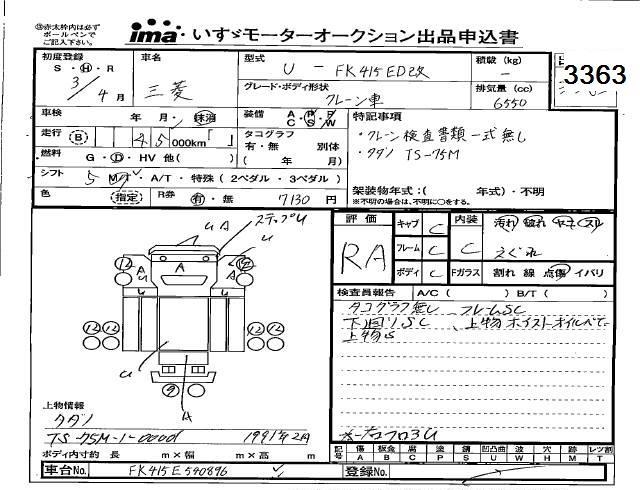 ㊟赤太枠内は必ず
ボールペンで
ご記入下さい。
ima・いすゞモーターオークション出品申込書
初度登録
S・H・R
3/4月
車名
三菱
型式
U-FK415ED改
積載 (kg)
-
3363
グレード・ボディ形状
クレーン車
排気量 (cc)
6550
車検
年 月 ・ 抹消
装備
A P P
C S W
特記事項
・クレーン検査書類一式無し
・タダノ TS-75M
走行
B
000km「 」
タコグラフ
有・無 別体
( 年 月)
燃料
G・D・HV 他( )
シフト
5 MT・A/T・特殊 (2ペダル・3ペダル)
架装物年式:( 年式)・不明
※不明の場合は、不明に○をする。
色
(指定)
R券
有・無
7130 円
評価
RA
キャブ C
フレーム C
ボディ C
内装
C
汚れ 破れ
Fガラス
割れ 線 点傷 イバリ
検査員報告
A/C ( )
B/T ( )
タコグラフ無し フレームSC
下回りSC
上物S
ステップU
u A
u
A
A
u
A
u
12
12
12
12
u
A
上物情報
タダノ
TS-75M-1-0000
1991年2月
ボディ内寸約 長 m×幅 m×高 m
記号
傷 A
板金 B
腐 C
塗 P
錆 S
凹凸曲 U
波 W
穴 H
跡 M
レツ割 T
車台No.
FK415E540896
登録No.